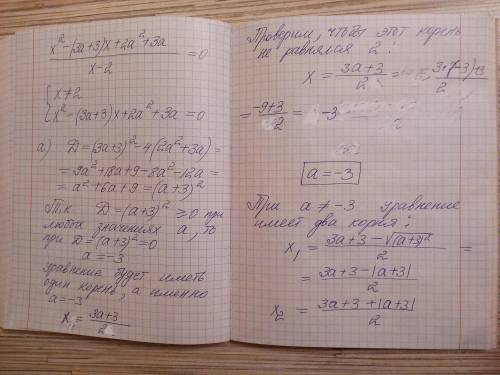 x² - (3a+3)x + 2a² + 3a
――― = 0
x - 2
{ x ≠ 2
{ x² - (3a+3)x + 2a² + 3a = 0
а) D = (3a+3)² - 4(2a² + 3a) =
= 9a² + 18a + 9 - 8a² - 12a =
= a² + 6a + 9 = (a+3)²
Т.к. D = (a+3)² ≥ 0 при
любых значениях a, то
при D = (a+3)² = 0
a = -3
уравнение будет иметь
один корень, а именно
a = -3
x₁ = (3a+3)/2
Проверим, чтобы этот корень
не равнялся 2:
x = (3a+3)/2 = (3·(-3)+3)/2
= (-9+3)/2 = -3
a = -3
При a ≠ -3 уравнение
имеет два корня:
x₁ = (3a+3 - √(a+3)²)/2 =
= (3a+3 - |a+3|)/2
x₂ = (3a+3 + |a+3|)/2